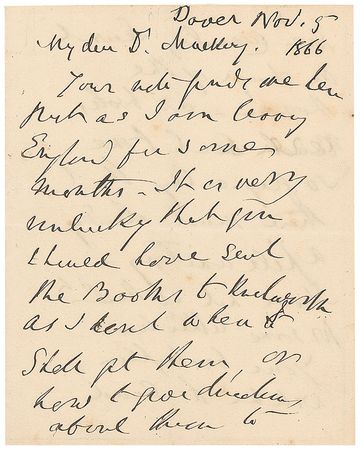 Dover Nov. 5
My dear Dr. Mackay. 1866
Your note finds me here
just as I am leavg
England for some
months - It is very
unlucky that you
should have sent
the Books to Knebworth
as I dont when I
Shall get them, or
how to give directions
about them to